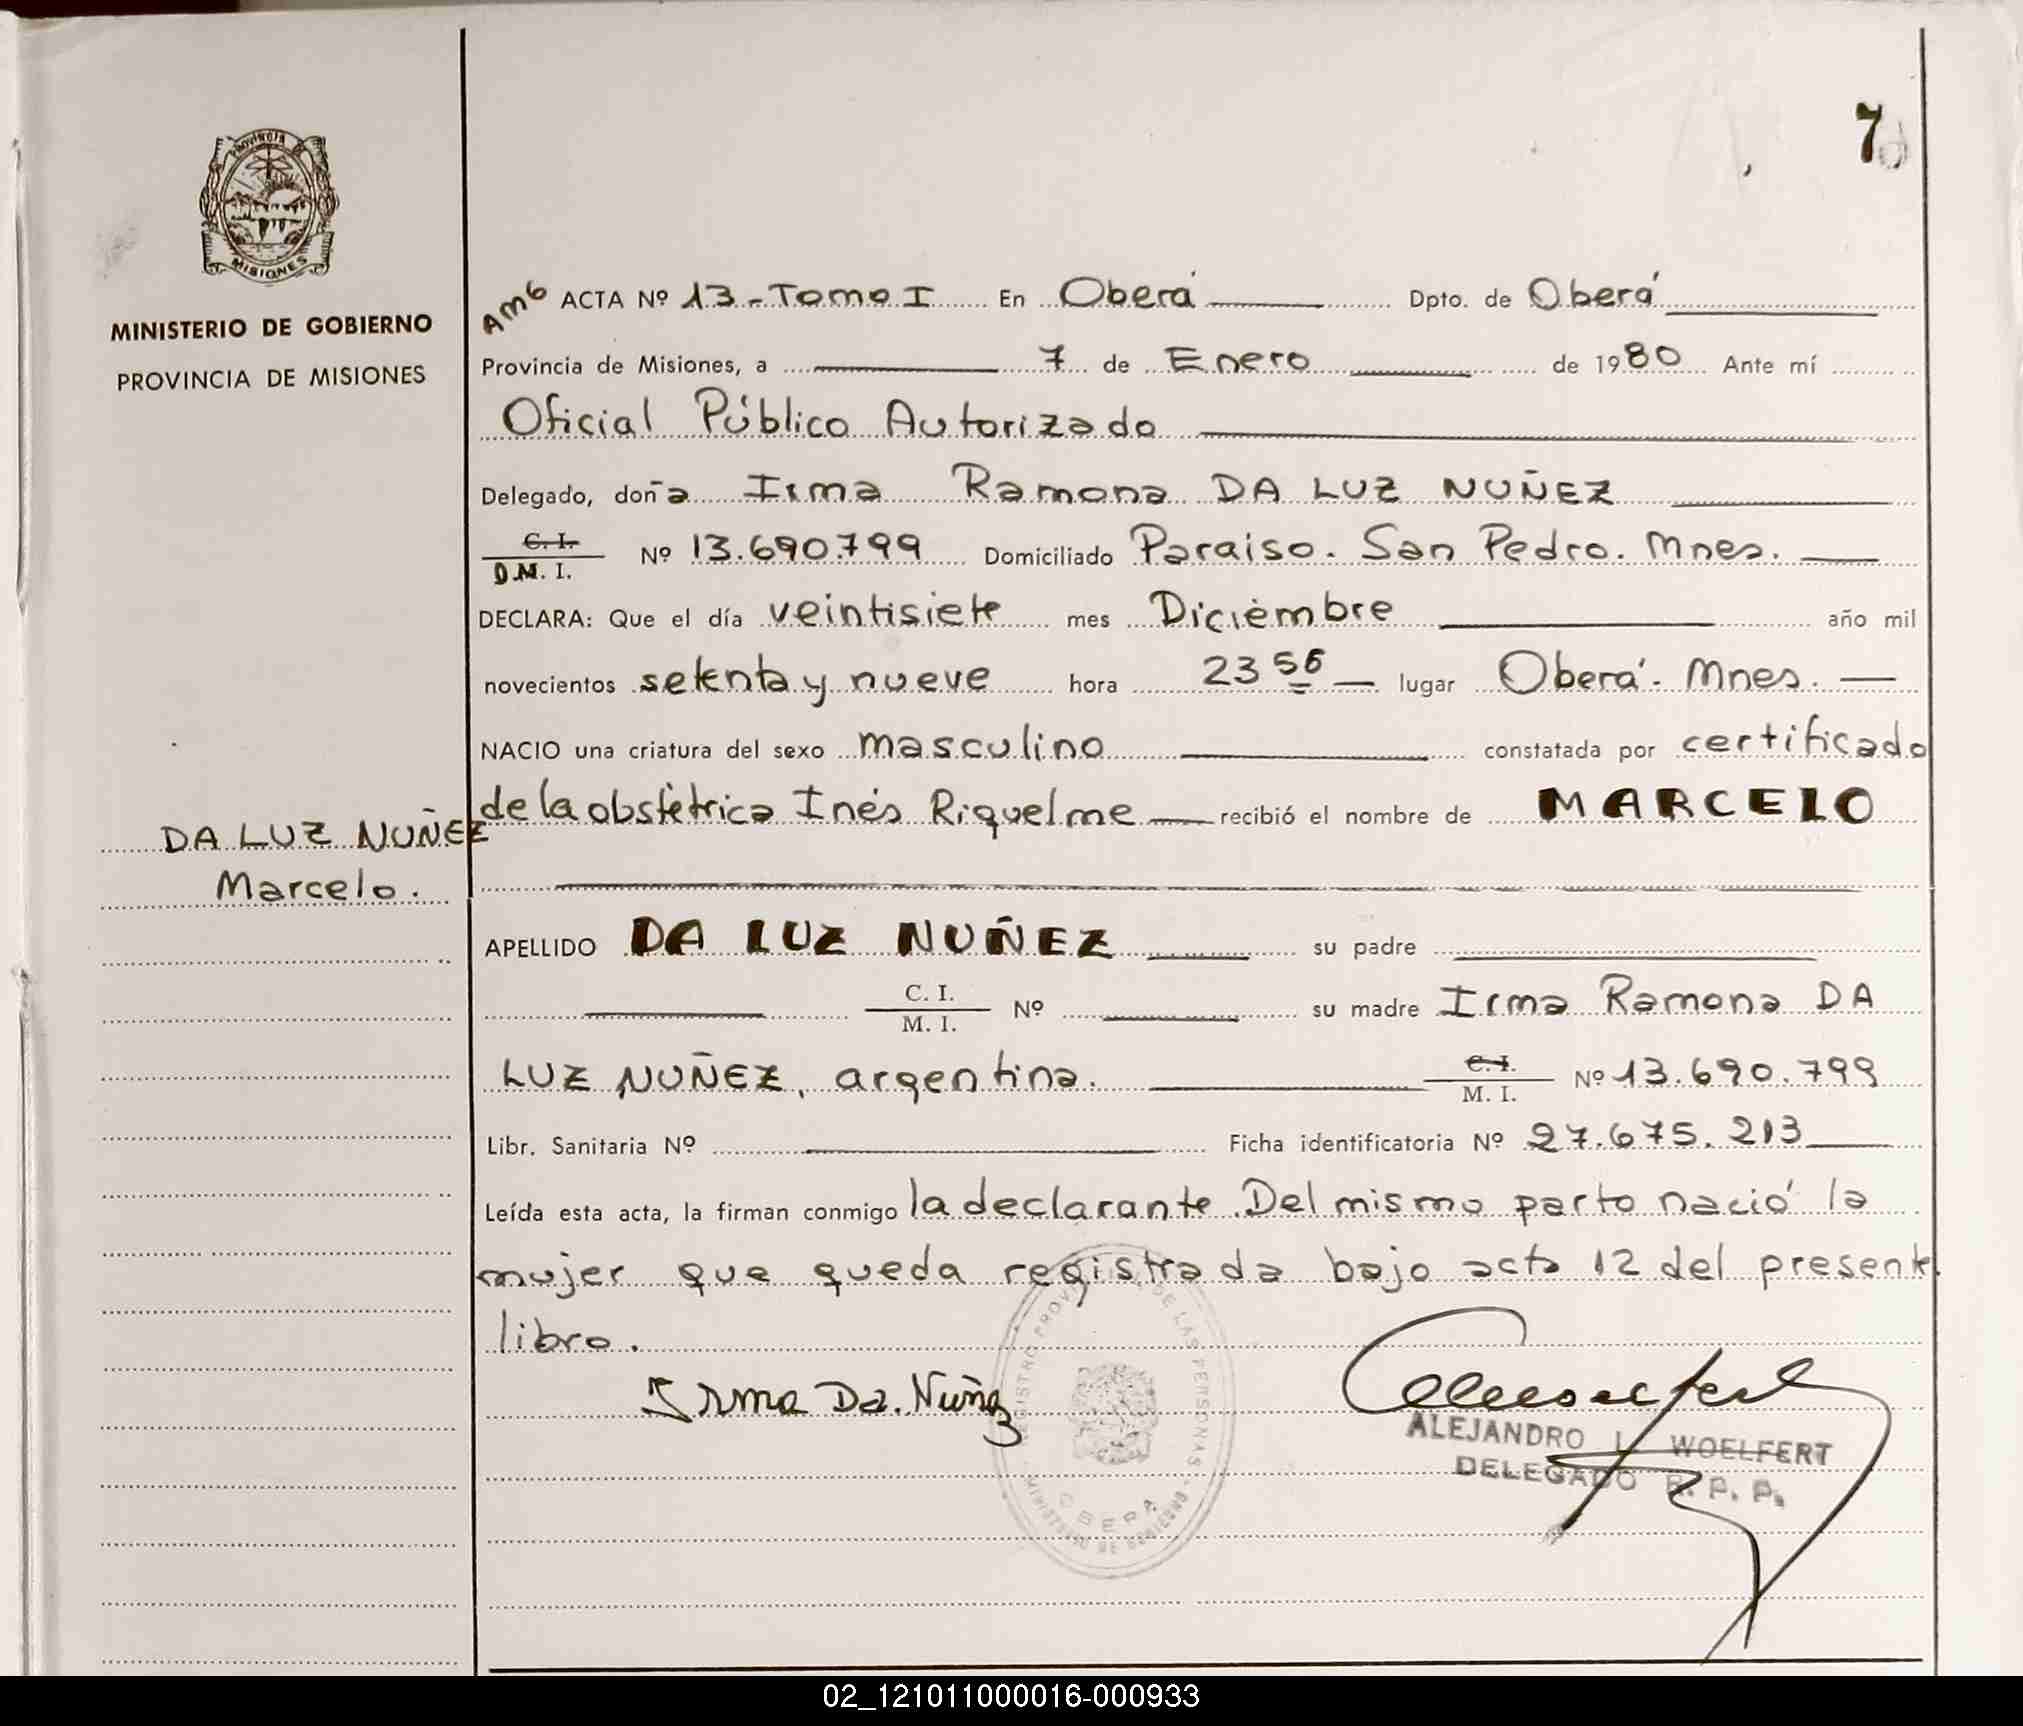 7
Provincia
MISIONES
MINISTERIO DE GOBIERNO
PROVINCIA DE MISIONES
Amb ACTA Nº 13.- Tomo I En Oberá Dpto. de Oberá
Provincia de Misiones, a 7 de Enero de 1980 Ante mí
Oficial Público Autorizado
Delegado, doña Irma Ramona DA LUZ NUÑEZ
C. I.
D.M. I. Nº 13.690.799 Domiciliado Paraiso. San Pedro. Mnes.
DECLARA: Que el día veintisiete mes Diciembre año mil
novecientos setenta y nueve hora 23 56 lugar Oberá. Mnes.
NACIO una criatura del sexo masculino constatada por certificado
de la obstétrica Inés Riquelme recibió el nombre de MARCELO
DA LUZ NUÑEZ
Marcelo.
APELLIDO DA LUZ NUÑEZ su padre
C. I.
M. I. Nº su madre Irma Ramona DA
LUZ NUÑEZ, argentina. C. I.
M. I. Nº 13.690.799
Libr. Sanitaria Nº Ficha identificatoria Nº 27.675.213
Leída esta acta, la firman conmigo la declarante. Del mismo parto nació la
mujer que queda registrada bajo acta 12 del presente
libro.
Irma Da. Nuñez
REGISTRO PROVINCIAL DE LAS PERSONAS
MINISTERIO DE GOBIERNO
OBERA
ALEJANDRO L. WOELFERT
DELEGADO R. P. P.
02_121011000016-000933